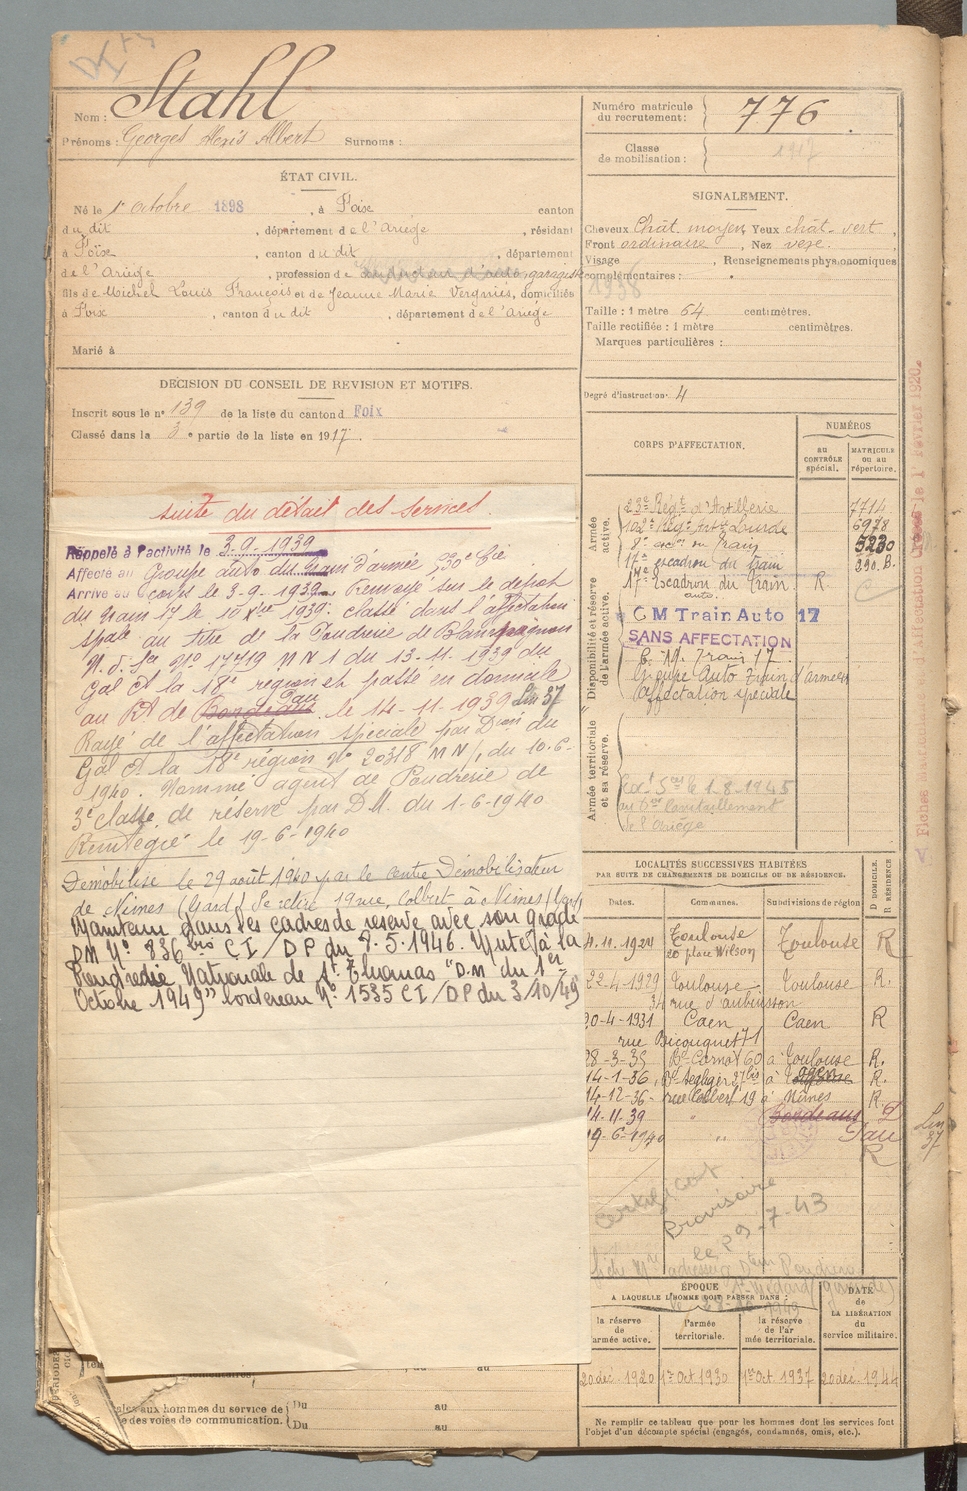 Nom : Stahl
Prénoms : Georges Alexis Albert Surnoms :
Numéro matricule du recrutement : 776
Classe de mobilisation : 1917
ÉTAT CIVIL.
Né le 1er octobre 1898, à Foix canton
du dit, département de l'Ariège, résidant
à Foix, canton du dit, département
de l'Ariège, profession de conducteur d'auto, garagiste
fils de Michel Louis François et de Jeanne Marie Vergniès, domiciliés
à Foix, canton du dit, département de l'Ariège
Marié à
DÉCISION DU CONSEIL DE REVISION ET MOTIFS.
Inscrit sous le n° 139 de la liste du canton d Foix
Classé dans la 3e partie de la liste en 1917.
SIGNALEMENT.
Cheveux Chât. moyen, Yeux chât-vert,
Front ordinaire, Nez vexe.
Visage , Renseignements physionomiques
complémentaires :
1938
Taille : 1 mètre 64 centimètres.
Taille rectifiée : 1 mètre centimètres.
Marques particulières :
Degré d'instruction : 4
CORPS D'AFFECTATION.
NUMÉROS
AU CONTRÔLE spécial.
MATRICULE ou au répertoire.
Armée active.
23e Régt d'Artillerie 7714
102e Régt Artie Lourde 6978
8e escon du Train 5230
17e escadron du train 290 B.
Disponibilité et réserve de l'armée active.
17e Escadron du Train. R
auto.
CM Train Auto 17
SANS AFFECTATION
C. M. Train 17.
Groupe Auto Train d'armées
affectation spéciale
Armée territoriale et sa réserve.
le 1.8.1945
Ravitaillement
de l'Ariège
suite du détail des services.
Rappelé à l'activité le 3.9.1939
Affecté au Groupe auto du train d'armée 530e Cie
Arrivé au corps le 3-9-1939. Renvoyé sur le dépôt
du train 17 le 10 Xbre 1939. classé dans l'affectation
spale au titre de la Poudrerie de
N. d. Sce N° 17719 MN 1 du 13-11-1939 du
Gal Ct la 18e région et passé en domicile
au RA de Bordeaux Pau le 14-11-1939 Lin 37
Rayé de l'affectation spéciale par Don du
Gal Ct la 18e région N° 20318 MN/1 du 10-6-
1940. Nommé agent de Poudrerie de
3e classe de réserve par D.M. du 1-6-1940
Réintégré le 19-6-1940
Démobilisé le 29 août 1940 par le Centre Démobilisateur
de Nîmes (Gard) Se retire 19 rue Colbert à Nîmes (Gard)
Maintenu dans les cadres de réserve avec son grade
DM N° 836 bis CI/DP du 7.5.1946. Muté à la
Poudrerie Nationale de St Thomas "D.M du 1er
Octobre 1949" bordereau N° 1535 CI/DP du 3/10/49
LOCALITÉS SUCCESSIVES HABITÉES
PAR SUITE DE CHANGEMENTS DE DOMICILE OU DE RÉSIDENCE.
D DOMICILE. R RÉSIDENCE
Dates. Communes. Subdivisions de région
4.11.1924 Toulouse 20 place Wilson Toulouse R
22-4-1929 Toulouse Toulouse R.
34 rue d'aubuisson
20-4-1931 Caen Caen R
rue Bicoquet 71
28-3-35 Bd Carnot 60 à Toulouse R.
14-1-36, 27bis à Agen R.
14-12-36- rue Colbert 19 à Nîmes R.
14-11-39 " Bordeaux D
19-6-1940 " Pau
R
Lin 37
Certificat
Provisoire
le 29-7-43
Poudrerie
St Médard (Gironde)
1949
ÉPOQUE
A LAQUELLE L'HOMME DOIT PASSER DANS :
la réserve de l'armée active.
l'armée territoriale.
la réserve de l'armée territoriale.
DATE de LA LIBÉRATION du service militaire.
20 déc. 1920 1er Oct. 1930 1er Oct. 1937 20 déc. 1944
Ne remplir ce tableau que pour les hommes dont les services font
l'objet d'un décompte spécial (engagés, condamnés, omis, etc.).
aux hommes du service de
des voies de communication.
Du au
Du au
1er février 1920.